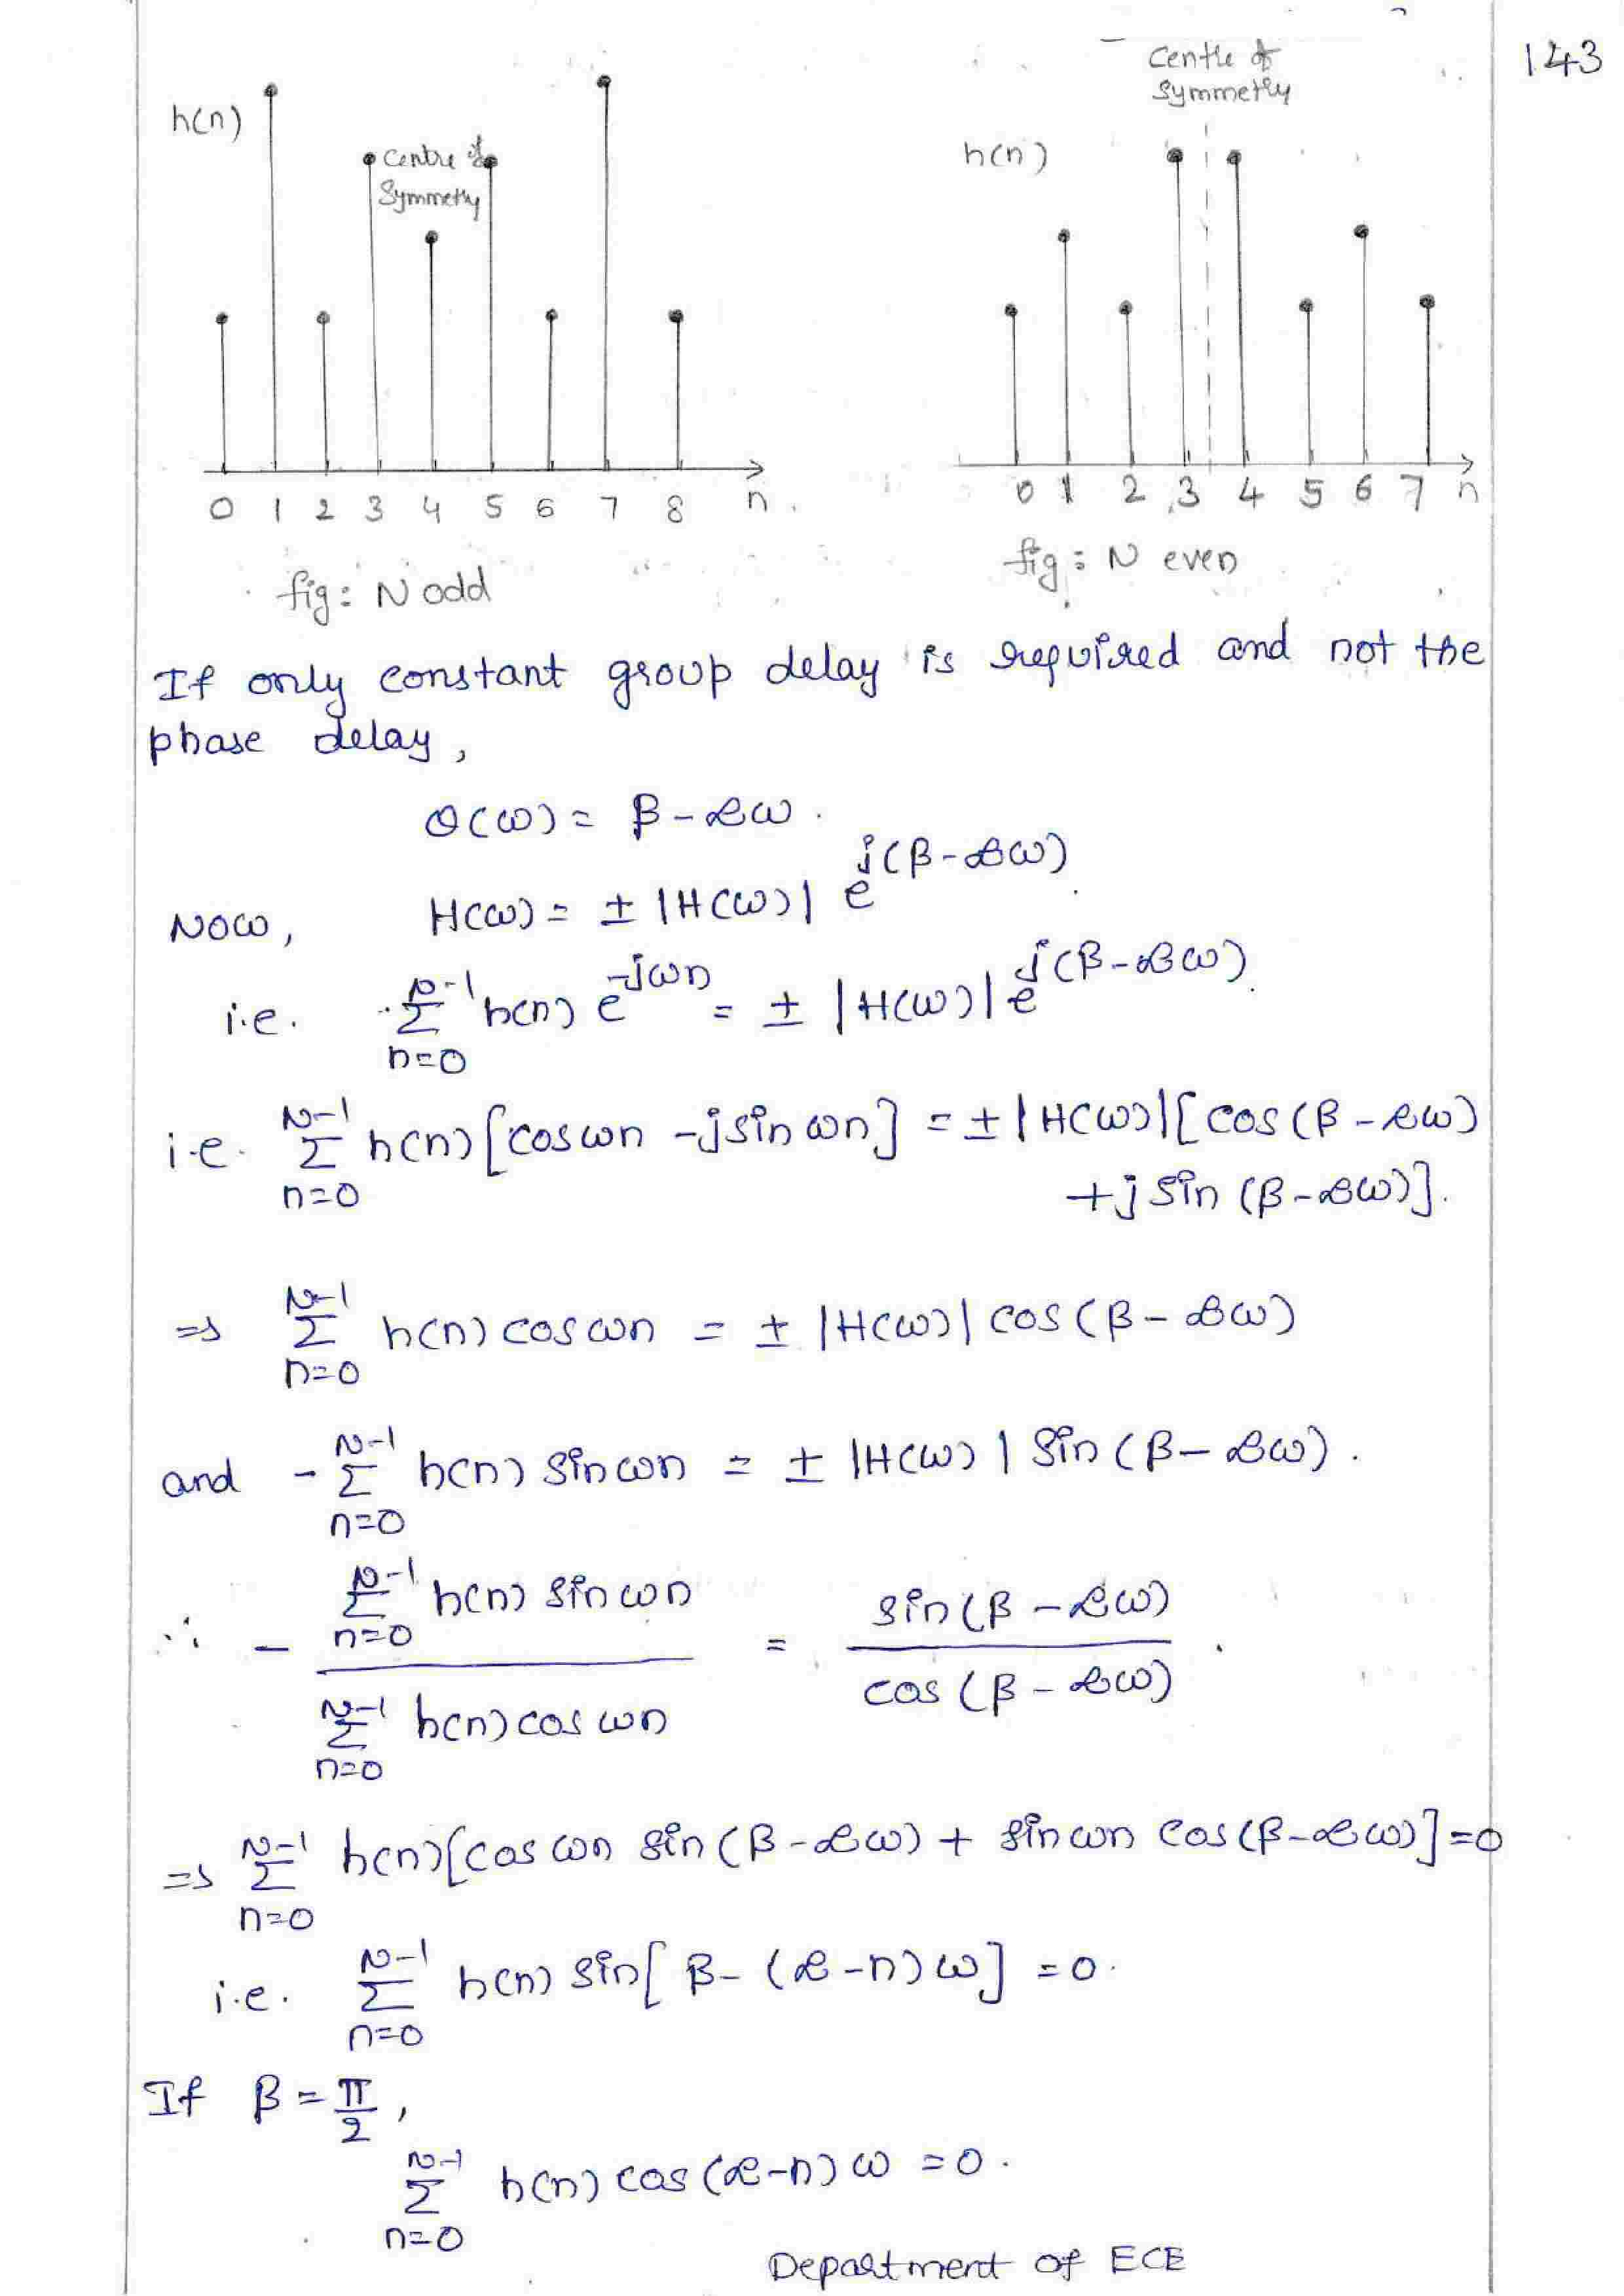 143
h(n)
Centre of
Symmetry
0 1 2 3 4 5 6 7 8 n
fig: N odd
Centre of
Symmetry
h(n)
0 1 2 3 4 5 6 7 n
fig: N even
If only constant group delay is required and not the
phase delay,
θ(ω) = β - αω.
Now, H(ω) = ± |H(ω)| e^{j(β-αω)}.
i.e. Σ_{n=0}^{N-1} h(n) e^{-jωn} = ± |H(ω)| e^{j(β-αω)}.
i.e. Σ_{n=0}^{N-1} h(n) [cos ωn - j sin ωn] = ± |H(ω)| [cos (β - αω)
+ j sin (β - αω)].
⇒ Σ_{n=0}^{N-1} h(n) cos ωn = ± |H(ω)| cos (β - αω)
and - Σ_{n=0}^{N-1} h(n) sin ωn = ± |H(ω)| sin (β - αω).
∴ - \frac{Σ_{n=0}^{N-1} h(n) sin ωn}{Σ_{n=0}^{N-1} h(n) cos ωn} = \frac{sin (β - αω)}{cos (β - αω)}.
⇒ Σ_{n=0}^{N-1} h(n) [cos ωn sin (β - αω) + sin ωn cos (β - αω)] = 0
i.e. Σ_{n=0}^{N-1} h(n) sin [β - (α - n) ω] = 0.
If β = \frac{π}{2},
Σ_{n=0}^{N-1} h(n) cos (α - n) ω = 0.
Department of ECE